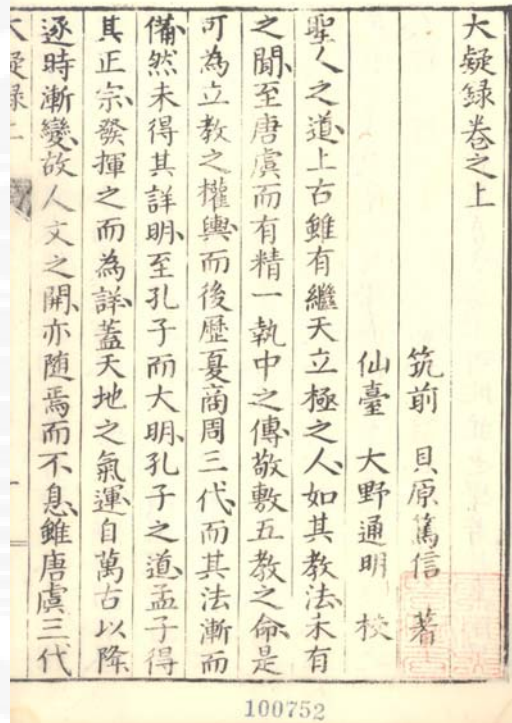 大疑録巻之上
筑前 貝原篤信 著
仙臺 大野通明 校
聖人之道、上古雖有繼天立極之人、如其教法未有
之聞、至唐虞而有精一執中之傳敬敷五教之命、是
可為立教之權輿而後歷夏商周三代、而其法漸而
備然未得其詳明、至孔子而大明、孔子之道、孟子得
其正宗、發揮之而為詳、蓋天地之氣運、自萬古以降
逐時漸變、故人文之開、亦隨焉而不息、雖唐虞三代
大疑録
100752